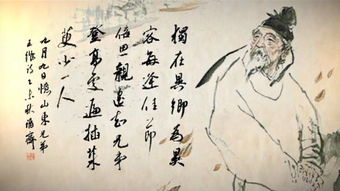 獨在異鄉為異
客每逢佳節
倍思親遙知兄弟
登高處遍插茱
萸少一人
九月九日憶山東兄弟
王維詩